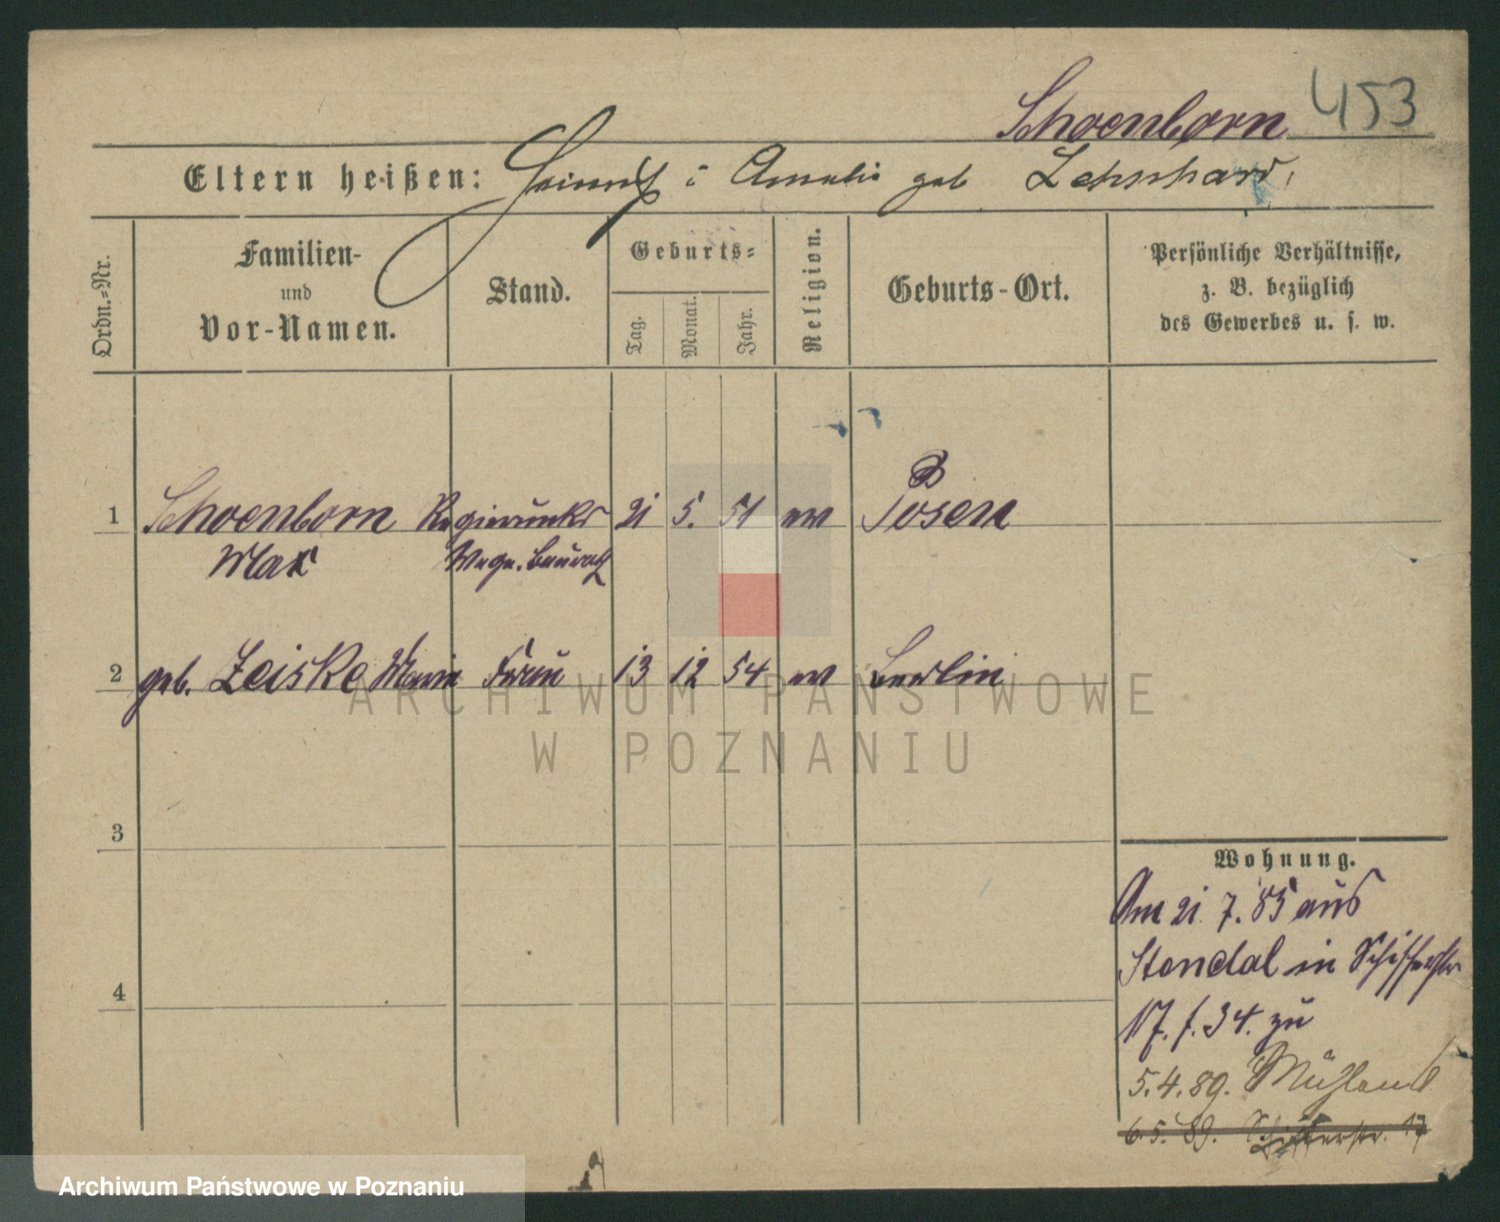 Schoenborn 453
Eltern heißen: Heinrich u Amalie geb Lehnhard,
Ordn.-Nr.
Familien-
und
Vor-Namen.
Stand.
Geburts-
Tag.
Monat.
Jahr.
Religion.
Geburts-Ort.
Persönliche Verhältnisse,
z. B. bezüglich
des Gewerbes u. s. w.
1 Schoenborn Regierungs 21 5. 51 ev Posen
Max
2 geb. Zeiske Marie Frau 13 12 54 ev Berlin
3
4
Wohnung.
Am 21 7. 85 aus
Stendal in Schifferstr
17. f. 34. zu
5.4.89.
6.5. 89. Schifferstr. 17
ARCHIWUM PAŃSTWOWE
W POZNANIU
Archiwum Państwowe w Poznaniu